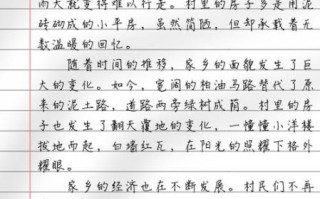 雨天就变得难以行走。村里的房子多是用泥
砖砌成的小平房，虽然简陋，但却承载着无
数温暖的回忆。
随着时间的推移，家乡的面貌发生了巨
大的变化。如今，宽阔的柏油马路替代了原
来的泥土路，道路两旁绿树成荫。村里的房
子也发生了翻天覆地的变化，一幢幢小洋楼
拔地而起，白墙红瓦，在阳光的照耀下格外
耀眼。
家乡的经济也在不断发展。村民们不再